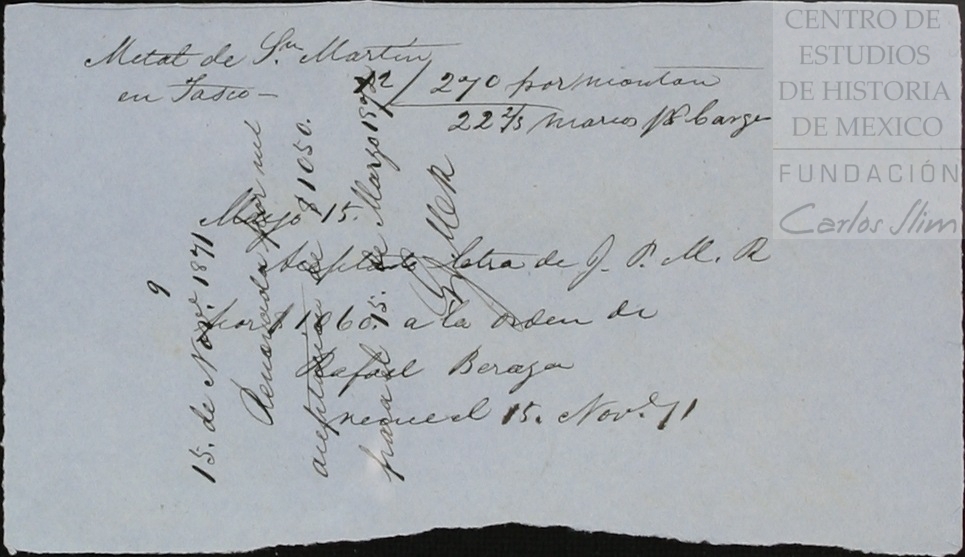 Metal de Sn. Martin
en Tasco —
270 por monton
22 2/3 marcos pr Carga
Mayo 15.
Aceptado letra de J. P. M. R
por $1060. a la orden de
Rafael Beraza
vence el 15. Nove. 71
9
15. de Nove. 1871
Renovada por mil
aceptacion de $1050.
para el 15. de Marzo 1872
CENTRO DE
ESTUDIOS
DE HISTORIA
DE MEXICO
FUNDACIÓN
Carlos Slim